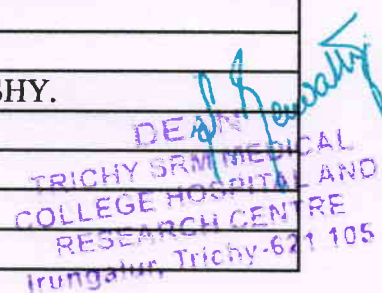 SHY.
DEAN
TRICHY SRM MEDICAL
COLLEGE HOSPITAL AND
RESEARCH CENTRE
Irungalur, Trichy-621 105